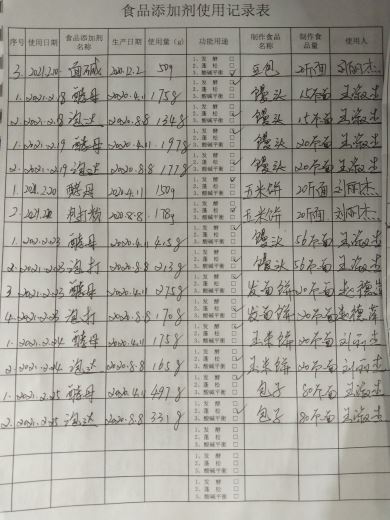 食品添加剂使用记录表
序号 使用日期 食品添加剂名称 生产日期 使用量(g) 功能用途 制作食品名称 制作食品量 使用人
3. 2021.2.20 面碱 2020.12.2 50g 1、发酵□ 2、蓬松□ 3、酸碱平衡 豆包 20斤面
1. 2021.2.18 酵母 2020.4.11 175g 1、发酵 2、蓬松□ 3、酸碱平衡□ 馒头 15斤面
2. 2021.2.18 2020.8.8 134g 1、发酵□ 2、蓬松 3、酸碱平衡□ 馒头 15斤面
1. 2021.2.19 酵母 2020.4.11 197g 1、发酵 2、蓬松□ 3、酸碱平衡□ 馒头 20斤面
2. 2021.2.19 2020.8.8 177g 1、发酵□ 2、蓬松 3、酸碱平衡□ 馒头 20斤面
1. 2021.2.20 酵母 2020.4.11 150g 1、发酵 2、蓬松□ 3、酸碱平衡□ 玉米饼 20斤面
2. 2020.8.8 178g 1、发酵□ 2、蓬松 3、酸碱平衡□ 玉米饼 20斤面
1. 2021.2.23 酵母 2020.4.11 1、发酵 2、蓬松□ 3、酸碱平衡□ 馒头 56斤面
2. 2021.2.23 泡打 2020.8.8 213g 1、发酵□ 2、蓬松 3、酸碱平衡□ 馒头 56斤面
3. 2021.2.23 酵母 2020.4.11 275g 1、发酵 2、蓬松□ 3、酸碱平衡□ 发面饼 20斤面
4. 2021.2.23 泡打 2020.8.8 170g 1、发酵□ 2、蓬松 3、酸碱平衡□ 发面饼 20斤面
1. 2021.2.24 酵母 2020.4.11 158g 1、发酵 2、蓬松□ 3、酸碱平衡□ 玉米饼 20斤面
2. 2021.2.24 2020.8.8 165g 1、发酵□ 2、蓬松 3、酸碱平衡□ 玉米饼 20斤面
1. 2021.2.25 酵母 2020.4.11 497g 1、发酵 2、蓬松□ 3、酸碱平衡□ 包子 80斤面
2. 2021.2.25 2020.8.8 331g 1、发酵□ 2、蓬松 3、酸碱平衡□ 包子 80斤面
1、发酵□ 2、蓬松□ 3、酸碱平衡□
1、发酵□ 2、蓬松□ 3、酸碱平衡□